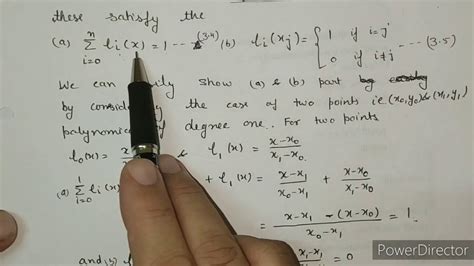 these satisfy the
(a) n∑i=0 li(x) = 1 --- (3.4) (b) li(xj) = { 1 if i=j
0 if i≠j --- (3.5)
We can show (a) & (b) part
by the case of two points i.e (x0,y0) & (x1,y1)
polynomial of degree one.. For two points
l0(x) = & l1(x) = x-x0 / x1-x0.
(a) 1∑i=0 li(x) + l1(x) = x-x1 / x0-x1 + x-x0 / x1-x0
= x-x1 -(x-x0) / x0-x1 = 1.
x1-x1 / = 0
PowerDirector